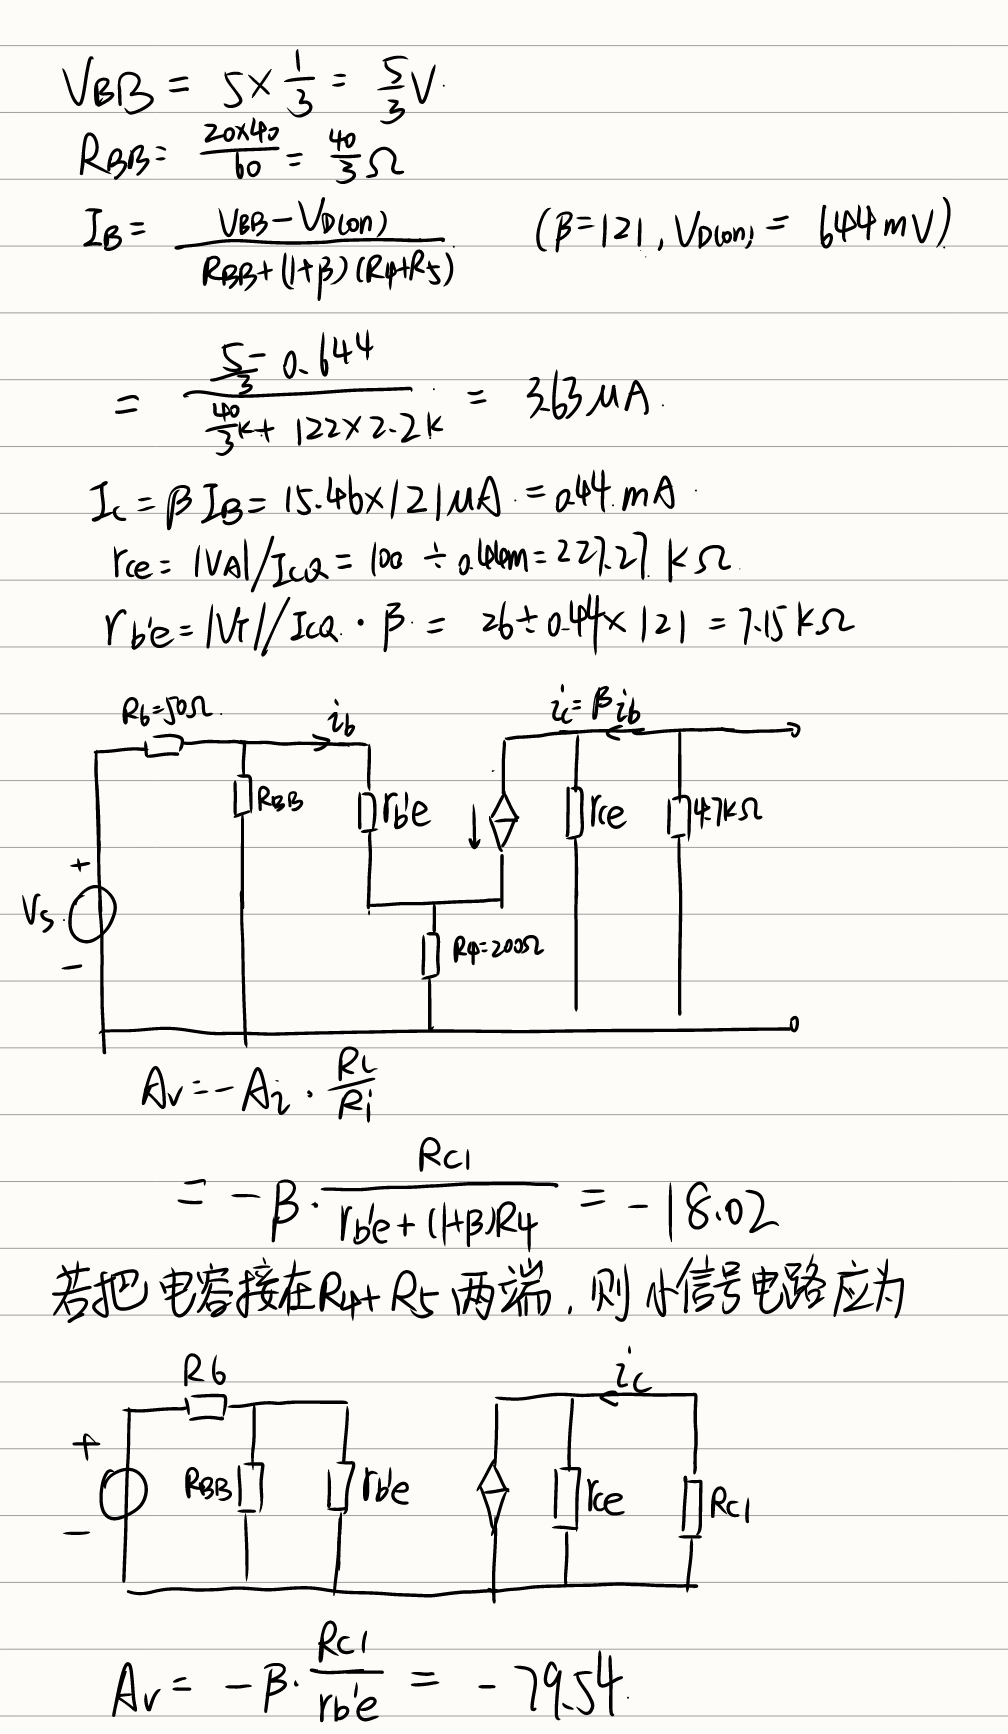 VBB = 5×1/3 = 5/3 V.
RBB = 20×40/60 = 40/3 Ω
IB = (VBB-VD(on))/(RBB+(1+β)(R4+R5)) (β=121, VD(on) = 644mV)
= (5/3-0.644)/(40/3 k+122×2.2k) = 3.63μA.
Ic = βIB = 15.46×121μA = 0.44mA.
rce = |VA|/ICQ = 100÷0.44m = 227.27kΩ.
rb'e = |VT|/ICQ·β = 26÷0.44×121 = 7.15kΩ
R6=50Ω ib ic=βib
RBB rb'e rce 4.7kΩ
+
Vs
R4=200Ω
-
Av = -Ai·RL/Ri
= -β·RC1/(rb'e+(1+β)R4) = -18.02
若把电容接在R4+R5两端,则小信号电路应为
R6 ic
+
RBB rb'e rce RC1
-
Av = -β·RC1/rb'e = -79.54.